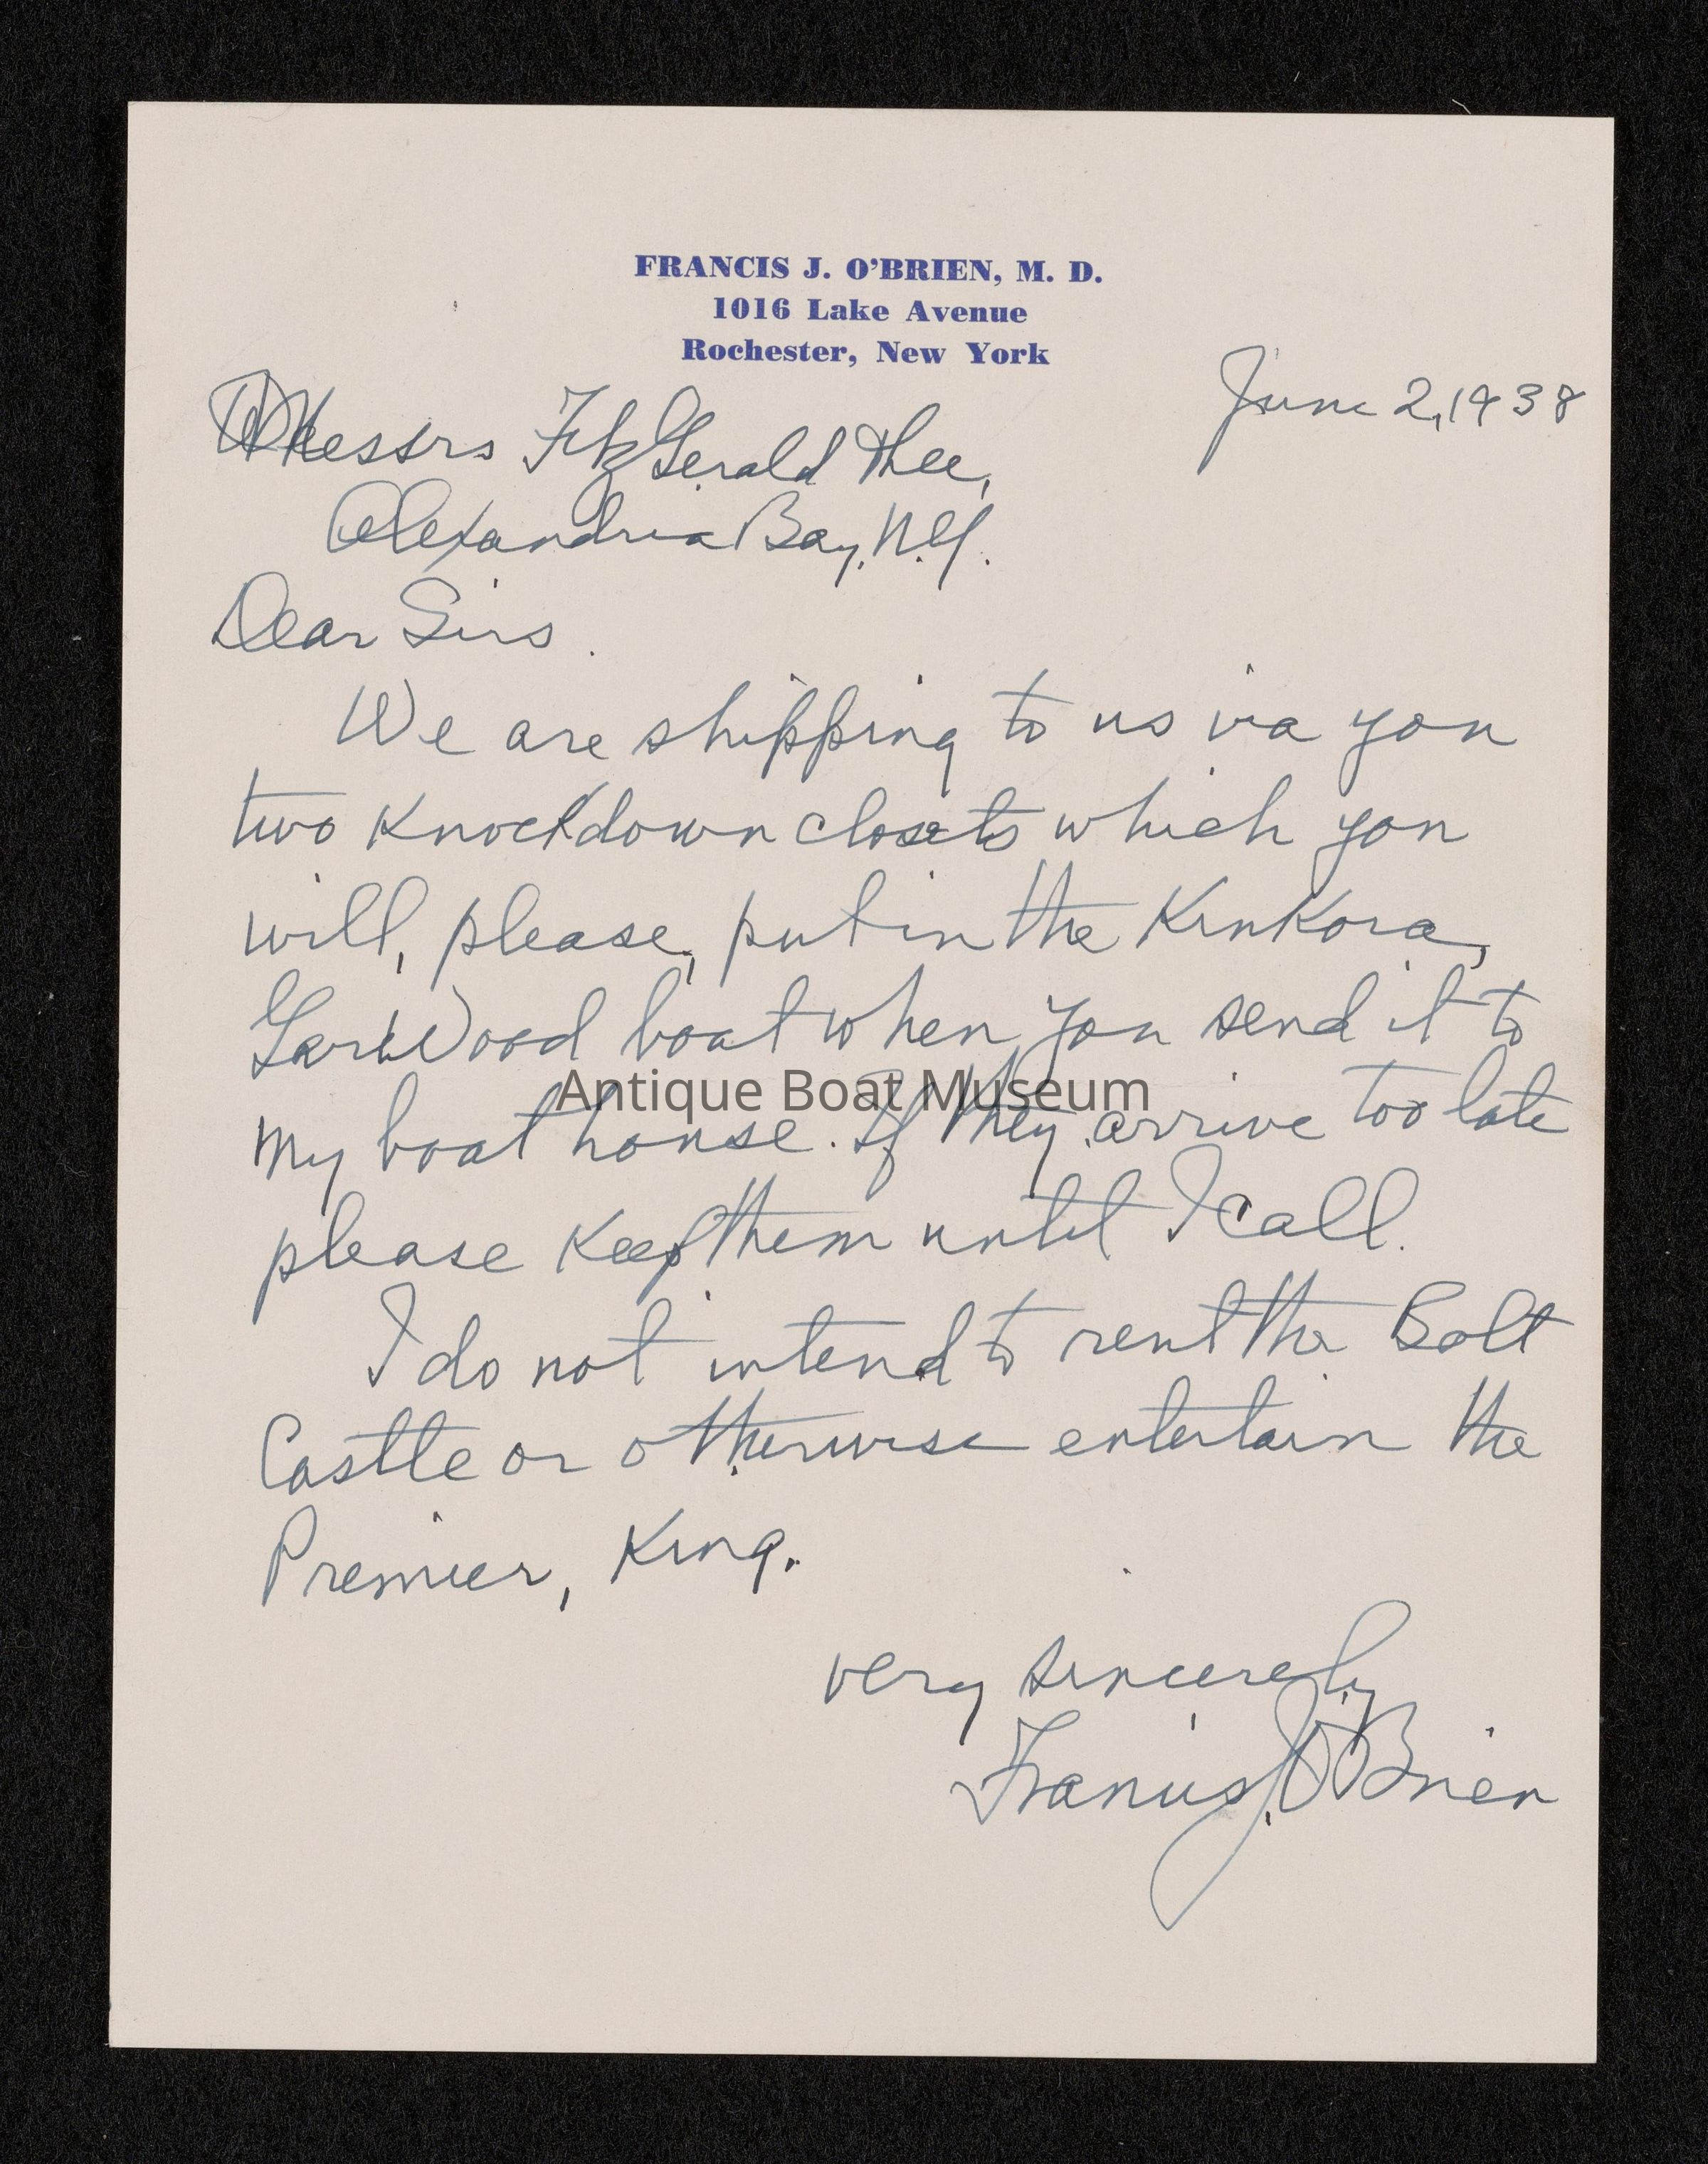 FRANCIS J. O'BRIEN, M. D.
1016 Lake Avenue
Rochester, New York
June 2, 1938
Messrs FitzGerald & Lee,
Alexandria Bay, N.Y.
Dear Sirs.
We are shipping to us via you
two Knockdown closets which you
will, please, put in the Kinkora,
GarWood boat when you send it to
Antique Boat Museum
my boat house. If they arrive too late
please Keep them until I call.
I do not intend to rent the Bolt
Castle or otherwise entertain the
Premier, King.
very sincerely
Francis J. O'Brien